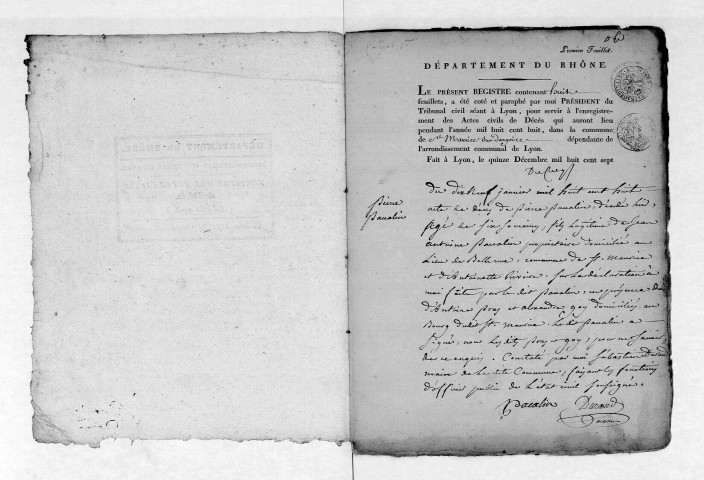 Premier Feuillet.
DÉPARTEMENT DU RHÔNE.
LE PRÉSENT REGISTRE contenant huit
feuillets, a été coté et paraphé par moi PRÉSIDENT du
Tribunal civil séant à Lyon, pour servir à l'enregistre-
ment des Actes civils de Décès qui auront lieu
pendant l'année mil huit cent huit, dans la commune
de St Maurice sur Dargoire dépendante de
l'arrondissement communal de Lyon.
Fait à Lyon, le quinze Décembre mil huit cent sept
Pierre
Pacalin
du dixneuf janvier mil huit cent huit
acte de décès de Pierre Pacalin, décédé hier,
agé de six semaines, fils légitime de Jean
Antoine Pacalin propriétaire domicilié au
Lieu de Bellevue, commune de St. Maurice
et d'Antoinette Rivoire. Sur la déclaration à
moi faite par le dit Pacalin, en présence
d'Antoine pray et gay domiciliés au
Bourg dudit St. Maurice. Le dit Pacalin a
signé, non les dits pray et gay, pour ne savoir
de ce enquis. Constaté par moi Sébastien Durand
maire de la dite Commune, faisant les fonctions
d'officier public de l'état civil soussigné.
Pacalin Durand
maire